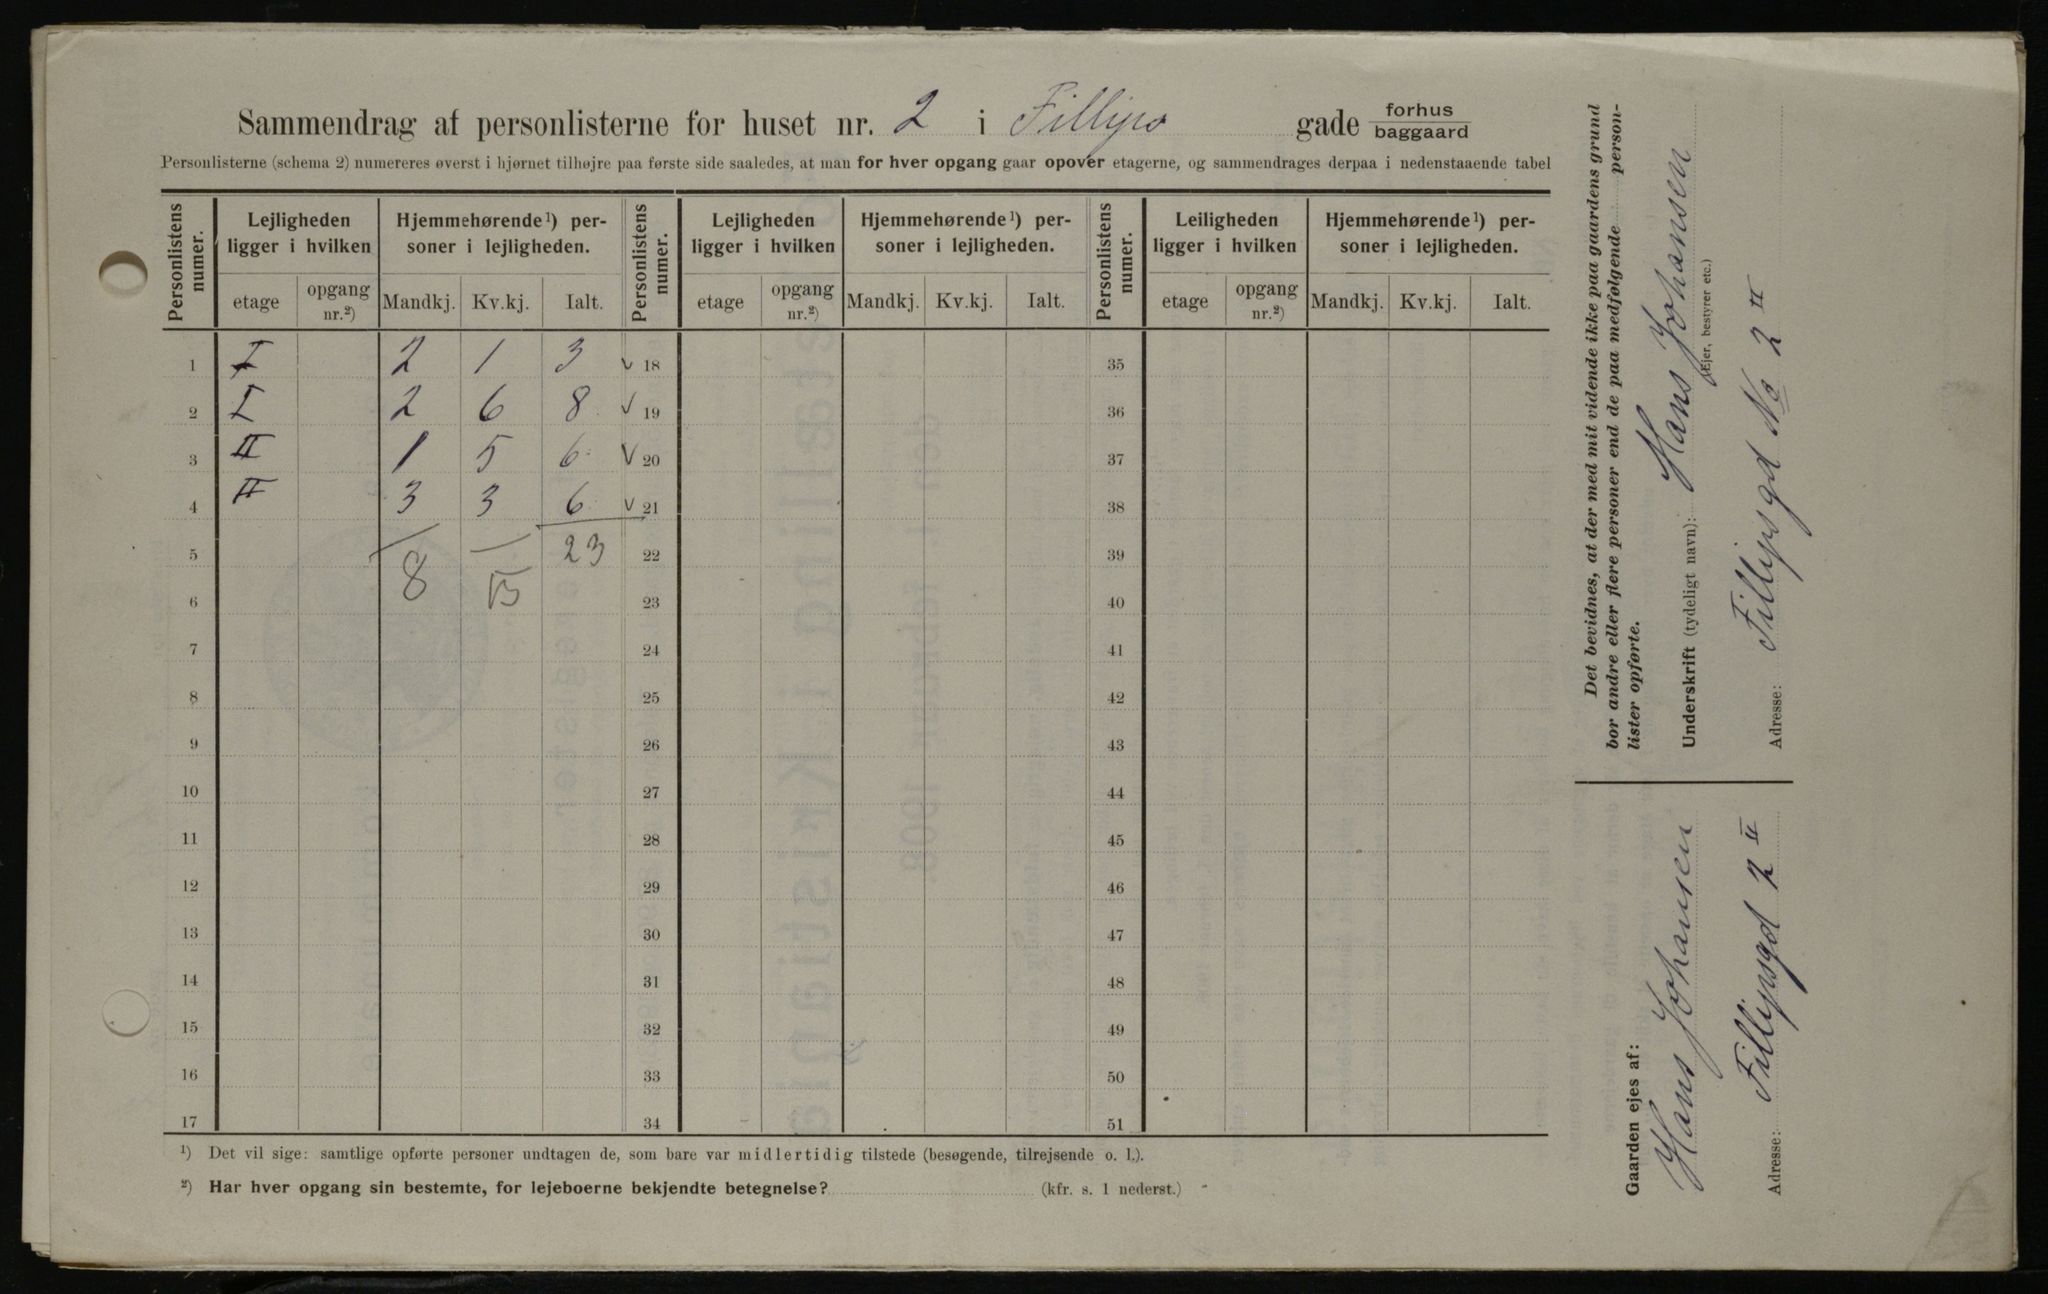 Sammendrag af personlisterne for huset nr. 2 i Fillips gade forhus baggaard
Personlisterne (schema 2) numereres øverst i hjørnet tilhøjre paa første side saaledes, at man for hver opgang gaar opover etagerne, og sammendrages derpaa i nedenstaaende tabel
Personlistens numer. Lejligheden ligger i hvilken Hjemmehørende¹) personer i lejligheden. Personlistens numer. Lejligheden ligger i hvilken Hjemmehørende¹) personer i lejligheden. Personlistens numer. Leiligheden ligger i hvilken Hjemmehørende¹) personer i lejligheden.
etage opgang nr.²) Mandkj. Kv.kj. Ialt. etage opgang nr.²) Mandkj. Kv.kj. Ialt. etage opgang nr.²) Mandkj. Kv.kj. Ialt.
1 I 2 1 3 v 18 35
2 I 2 6 8 v 19 36
3 II 1 5 6 v 20 37
4 II 3 3 6 v 21 38
5 23 22 39
6 8 15 23 40
7 24 41
8 25 42
9 26 43
10 27 44
11 28 45
12 29 46
13 30 47
14 31 48
15 32 49
16 33 50
17 34 51
¹) Det vil sige: samtlige opførte personer undtagen de, som bare var midlertidig tilstede (besøgende, tilrejsende o. l.).
²) Har hver opgang sin bestemte, for lejeboerne bekjendte betegnelse? (kfr. s. 1 nederst.)
Det bevidnes, at der med mit vidende ikke paa gaardens grund
bor andre eller flere personer end de paa medfølgende person-
lister opførte.
Underskrift (tydeligt navn): Hans Johansen
(Ejer, bestyrer etc.)
Adresse: Fillipsgd No 2 II
Gaarden ejes af:
Hans Johansen
Adresse: Fillipsgd 2 II